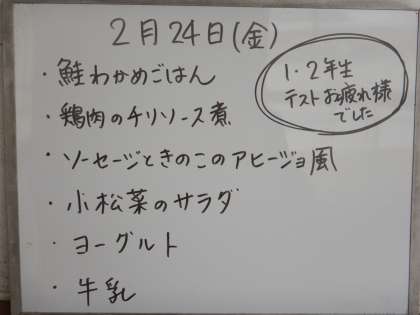 2月24日(金)
・鮭わかめごはん
・鶏肉のチリソース煮
・ソーセージときのこのアヒージョ風
・小松菜のサラダ
・ヨーグルト
・牛乳
1・2年生
テストお疲れ様
でした